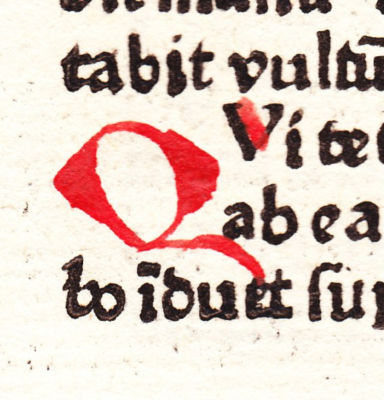 tabit vultū
QVi te
ab ea
bo īduet ſup